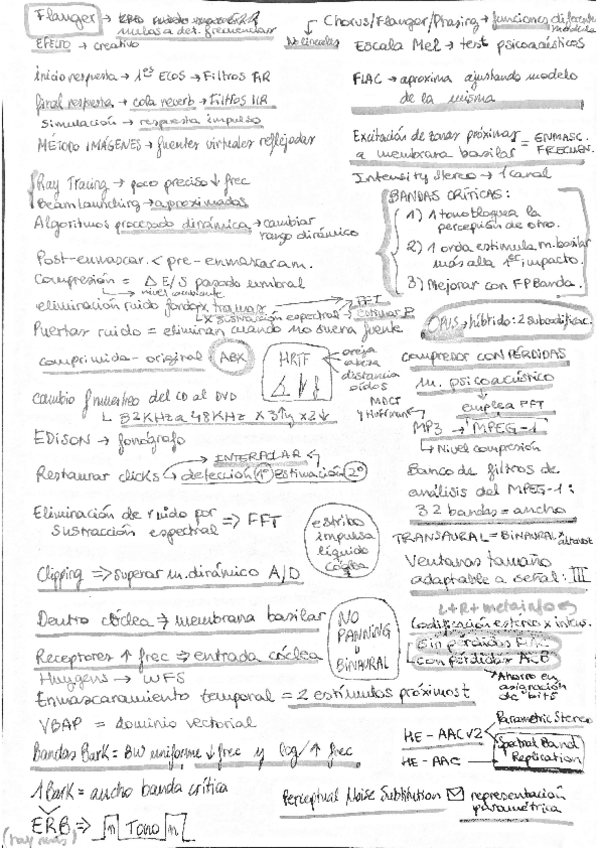 Flanger →
nulos a det. frecuencias
EFECTO → creativo
inicio respuesta → 1os ECOS → Filtros FIR
final respuesta → cola reverb → Filtros IIR
Simulación → respuesta impulso
MÉTODO IMÁGENES → fuentes virtuales reflejadas
Ray Tracing → poco preciso ↓ frec
Beam launching → aproximados
Algoritmos procesado dinámica → cambiar
rango dinámico
Post-enmascar. < pre-enmascaram.
Compresión = Δ E/S pasado umbral
→ nivel ambiente
eliminación ruido fondo x tramas → FFT
↳ X sustracción espectral → estimar P
Puertas ruido = eliminan cuando no suena fuente
comprimida - original ABX
HRTF → oreja
cabeza
distancia
oídos
cambio f muestreo del CD al DVD
↳ 32KHz a 48KHz X3↑ y X2↓
EDISON → fonógrafo
INTERPOLAR
Restaurar clicks → detección (1º) estimación (2º)
Eliminación de ruido por
sustracción espectral => FFT
estribo
impulsa
líquido
Clipping => superar m. dinámico A/D
Dentro cóclea => membrana basilar
Receptores ↑ frec => entrada cóclea
NO
PANNING
BINAURAL
Huygens → WFS
Enmascaramiento temporal = 2 estímulos próximos t
VBAP = dominio vectorial
Bandas Bark = BW uniforme ↓ frec y log / ↑ frec
1 Bark = ancho banda crítica
ERB => [n] Tono [n]
(hay más)
Chorus/Flanger/Phasing → funciones diferentes
No lineales
Escala Mel → test psicoacústicos
FLAC → aproxima ajustando modelo
de la misma
Excitación de zonas próximas = ENMASC.
a membrana basilar FRECUEN.
Intensity Stereo → 1 canal
BANDAS CRÍTICAS:
1) 1 tono bloquea la
percepción de otro.
2) 1 onda estimula m. basilar
más allá 1er impacto.
3) Mejorar con FPBanda.
OPUS → híbrido: 2 subcodific.
compresor CON PÉRDIDAS
m. psicoacústico
→ emplea FFT
MDCT
y Huffman
MP3 → MPEG-1
↳ Nivel compresión
Banco de filtros de
análisis del MPEG-1:
32 bandas = ancho
TRANSAURAL = BINAURAL x altavoz
Ventanas tamaño
adaptable a señal: III
L+R + metainfo
Codificación estéreo x intens.
Sin pérdidas
Con pérdidas
→ Ahorro en
asignación
de bits
HE-AACV2 → Parametric Stereo
HE-AAC → Spectral Band
Replication
Perceptual Noise Substitution representación
paramétrica